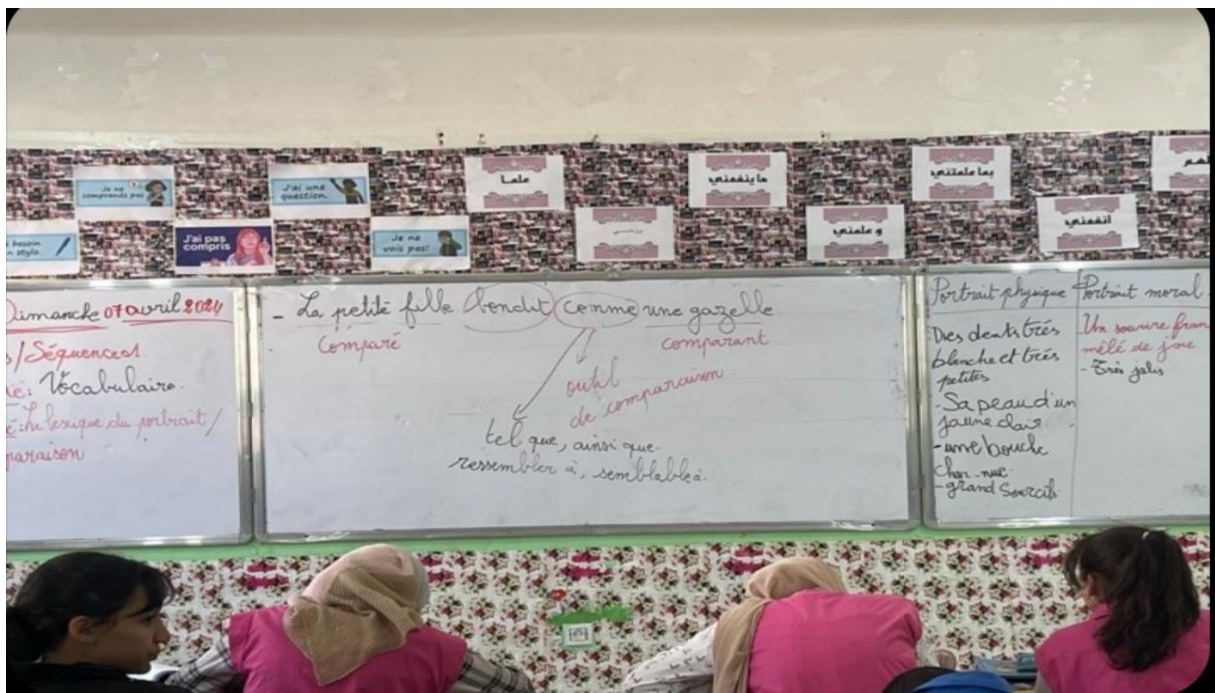 Je ne
comprends pas
J'ai une
question
علما
ما ينفعني
بما علمتني
besoin
stylo
J'ai pas
compris
Je ne
vois pas!
وزدني
و علمني
انفعني
Dimanche 07 avril 2024
/Séquence
Vocabulaire.
lexique du portrait/
paraison
- La petite fille bondit comme une gazelle
Comparé
comparant
outil
de comparaison.
tel que, ainsi que.
ressembler à, semblable à.
Portrait physique
Des dents très
blanche et très
petites
- Sa peau d'un
jaune clair.
- une bouche
- grand Sourcils
Portrait moral
Un sourire fran
mêlé de joie.
- Très jolis